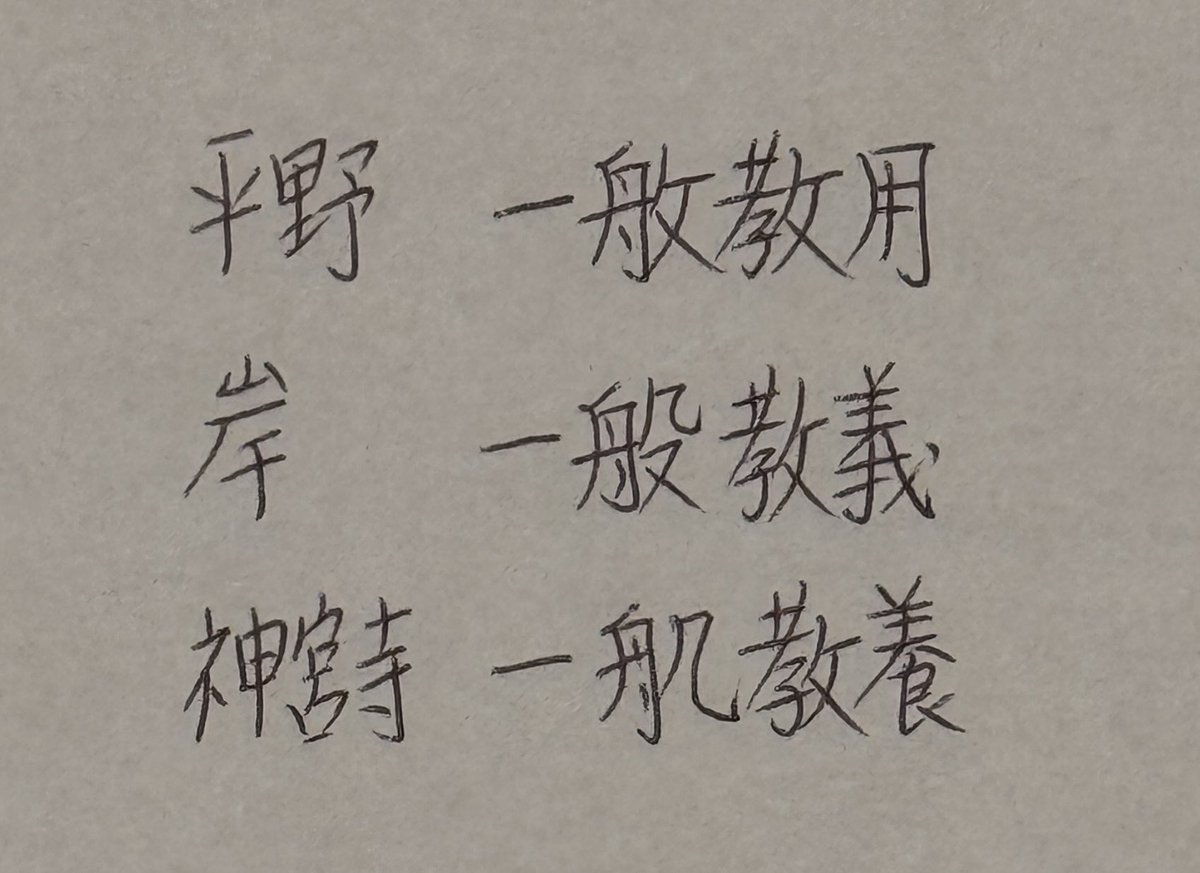 平野 一般教用
岸 一般教義
神宮寺 一舤教養